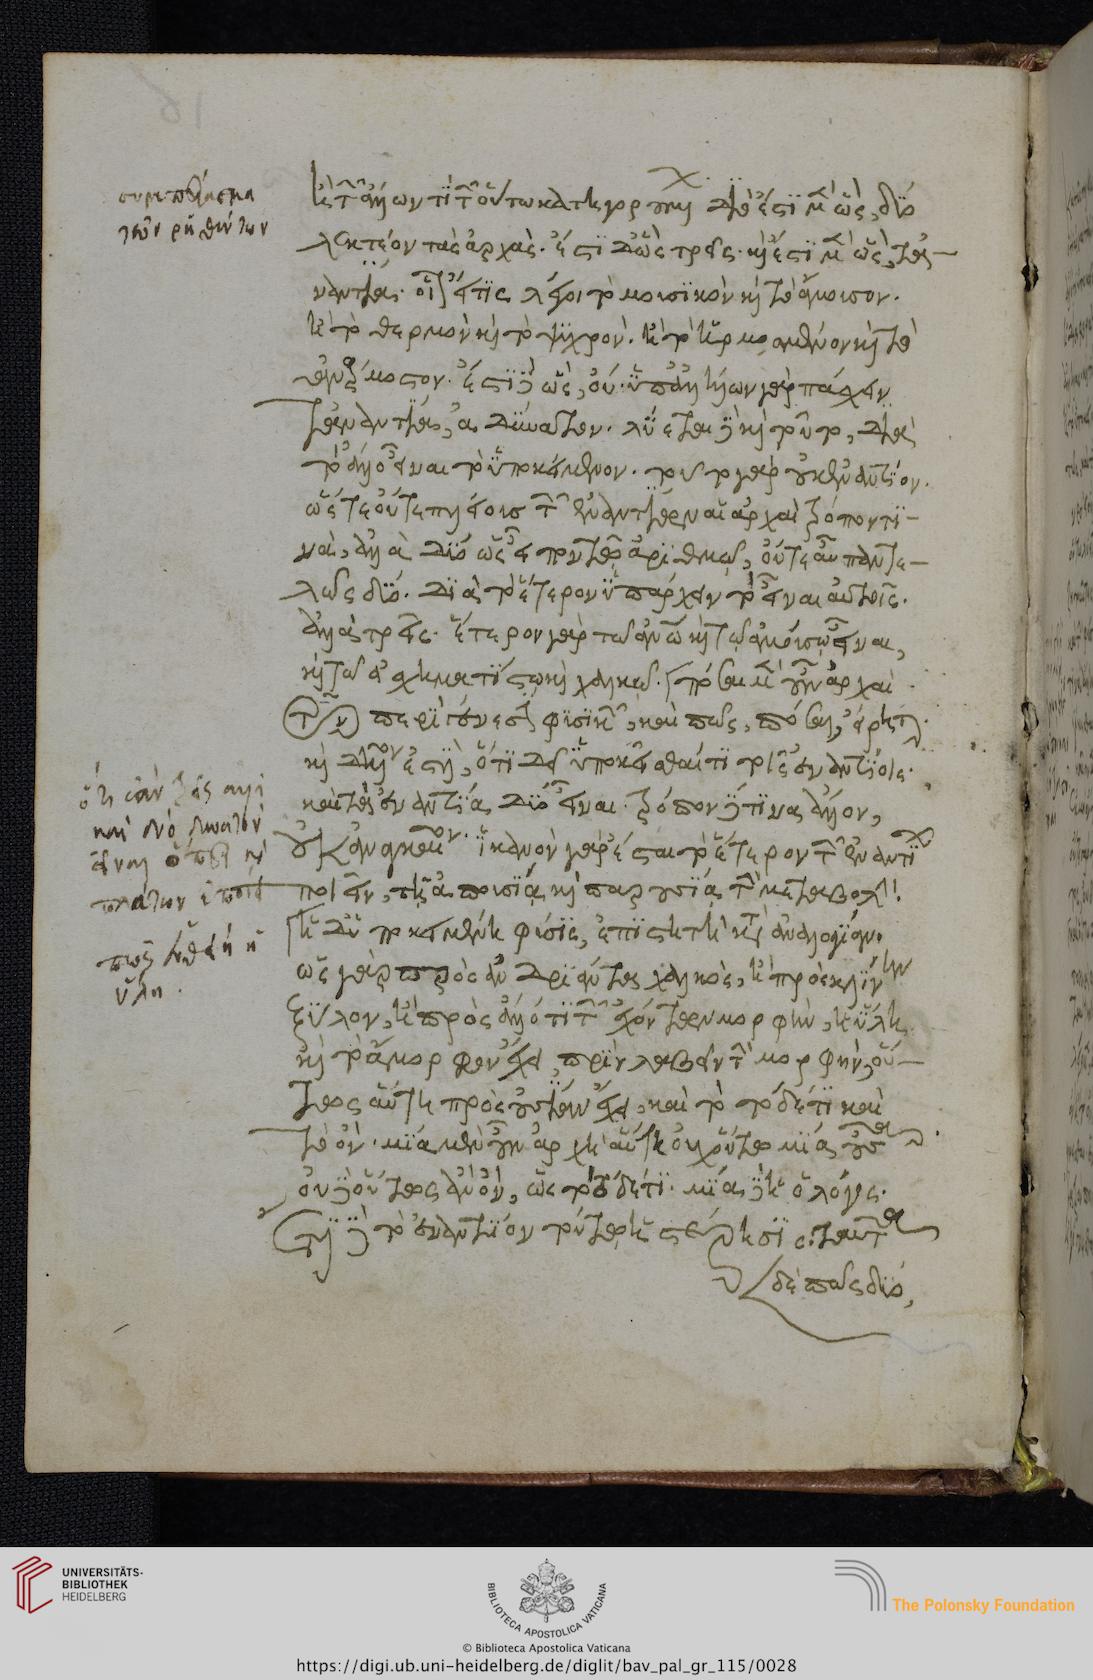 συμπέρασμα
τῶν ῥηθέντων
καὶ τῶν ἄλλων τι τῶν οὕτω κατηγορουμένων διὸ ἔστι μὲν ὡς, δύο
λεκτέον τὰς ἀρχὰς. ἔστι δ' ὡς τρεῖς. καὶ ἔστι μὲν ὡς, τἀ-
ναντία. οἷον εἴ τις λέγοι τὸ μουσικὸν καὶ τὸ ἄμουσον.
ἢ τὸ θερμὸν καὶ τὸ ψυχρὸν. ἢ τὸ ἡρμοσμένον καὶ τὸ
ἀνάρμοστον. ἔστι δὲ ὡς, οὔ. ὑπ' ἀλλήλων γὰρ πάσχειν
τἀναντία, ἀδύνατον. λύεται δὲ καὶ τοῦτο, διὰ
τὸ ἄλλο εἶναι τὸ ὑποκείμενον. τοῦτο γὰρ οὐκ ἐναντίον.
ὥστε οὔτε πλείους τῶν ἐναντίων αἱ ἀρχαὶ τρόπον τι-
νὰ, ἀλλὰ δύο ὡς εἰπεῖν τῷ ἀριθμῷ, οὔτε αὖ παντε-
λῶς δύο. διὰ τὸ ἕτερον ὑπάρχειν τὸ εἶναι αὐτοῖς.
ἀλλὰ τρεῖς. ἕτερον γὰρ τὸ ἀνθρώπῳ καὶ τὸ ἀμούσῳ εἶναι,
καὶ τὸ ἀσχηματίστῳ καὶ χαλκῷ. πόσαι μὲν οὖν ἀρχαὶ
τῶν περὶ γένεσιν φυσικῶν, καὶ πῶς πόσαι, εἴρηται.
καὶ δῆλον ἐστὶν, ὅτι δεῖ ὑποκεῖσθαί τι τοῖς ἐναντίοις.
καὶ τὰ ἐναντία, δύο εἶναι. τρόπον δέ τινα ἄλλον,
οὐκ ἀναγκαῖον. ἱκανὸν γὰρ ἔσται τὸ ἕτερον τῶν ἐναντίων
ποιεῖν, τῇ ἀπουσίᾳ καὶ παρουσίᾳ τὴν μεταβολήν.
ἡ δὲ ὑποκειμένη φύσις, ἐπιστητὴ κατὰ ἀναλογίαν.
ὡς γὰρ πρὸς ἀνδριάντα χαλκὸς, ἢ πρὸς κλίνην
ξύλον, ἢ πρὸς ἄλλό τι τῶν ἐχόντων μορφὴν, ἡ ὕλη
καὶ τὸ ἄμορφον ἔχει, πρὶν λαβεῖν τὴν μορφὴν, οὕ-
τως αὕτη πρὸς οὐσίαν ἔχει, καὶ τὸ τόδέ τι καὶ
τὸ ὄν. μία μὲν οὖν ἀρχὴ αὕτη οὐχ οὕτω μία οὖσα.
οὐδὲ οὕτως ὂν, ὡς τὸ τόδέ τι. μία δὲ ᾗ ὁ λόγος.
ἔτι δὲ τὸ ἐναντίον τούτῳ ἡ στέρησις. ταῦτα
δὲ πῶς δύο,
πῶς ληπτὴ ἡ
ὕλη.
UNIVERSITÄTS-
BIBLIOTHEK
HEIDELBERG
BIBLIOTECA APOSTOLICA VATICANA
The Polonsky Foundation
© Biblioteca Apostolica Vaticana
https://digi.ub.uni-heidelberg.de/diglit/bav_pal_gr_115/0028